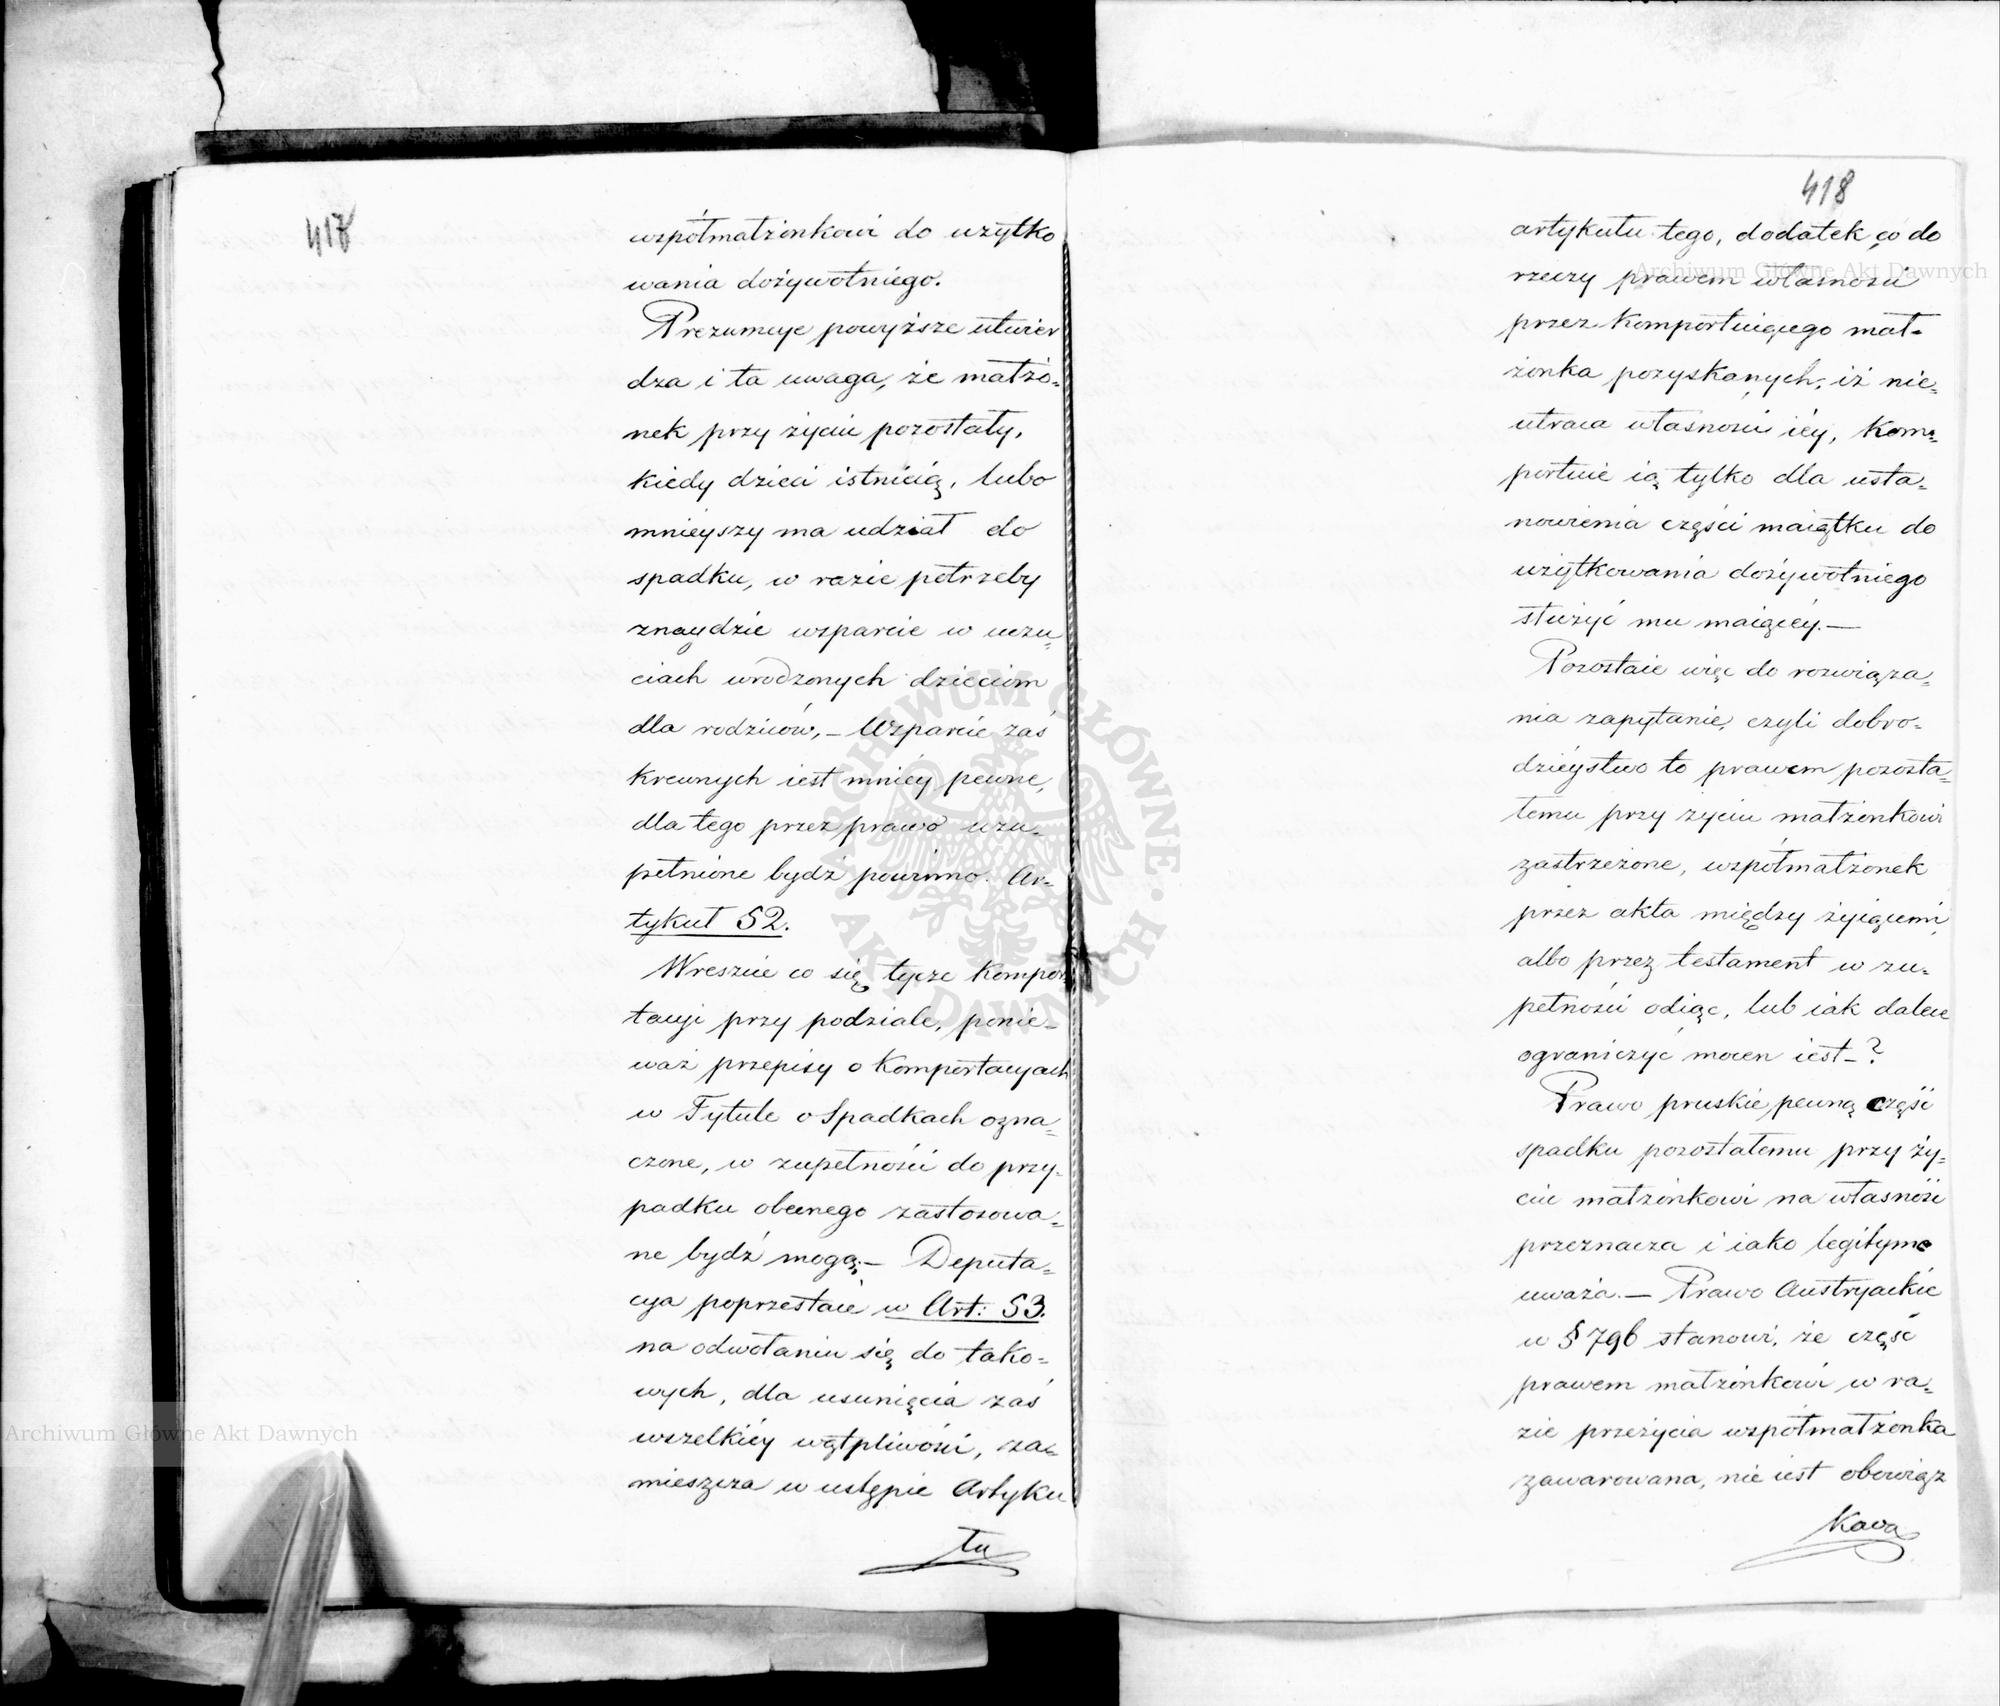 417
współmałżonkowi do użytko
wania dożywotniego.
Prezumcye powyższe utwier
dza i ta uwaga, że małżo-
nek przy życiu pozostały,
kiedy dzieci istnieią, lubo
mnieyszy ma udział do
spadku, w razie potrzeby
znaydzie wsparcie w uczu-
ciach wrodzonych dzieciom
dla rodziców, – Wsparcie zaś
krewnych iest mniéy pewne,
dla tego przez prawo uzu-
pełnione bydź powinno. Ar-
tykuł 52.
Wreszcie co się tycze Kompor
tacyi przy podziale, ponie-
waż przepisy o Komportacyach
w Tytule o Spadkach ozna-
czone, w zupełności do przy-
padku obecnego zastosowa-
ne bydź mogą; – Deputa-
cya poprzestaie w Art: 53.
na odwołaniu się do tako-
wych, dla usunięcia zaś
wszelkiéy wątpliwości, za-
mieszcza w ustępie Artyku
łu
418
artykułu tego, dodatek co do
rzeczy prawem własności
przez Komportuiącego mał-
żonka pozyskanych, iż nie-
utraca własności iéy, Kom-
portuie ią tylko dla usta-
nowienia części maiątku do
użytkowania dożywotniego
służyć mu maiącéy. –
Pozostaie więc do rozwiąza-
nia zapytanie, czyli dobro-
dzieystwo to prawem pozosta-
łemu przy życiu małżonkowi
zastrzeżone, współmałżonek
przez akta między żyiącemi,
albo przez testament w zu-
pełności odiąć, lub iak dalece
ograniczyć mocen iest – ?
Prawo pruskie pewną część
spadku pozostałemu przy ży-
ciu małżonkowi na własność
przeznacza i iako legitymę
uważa. – Prawo Austryackie
w § 796 stanowi, że część
prawem małżonkowi w ra-
zie przeżycia współmałżonka
zawarowana, nie iest obowiąz
Kową
Archiwum Główne Akt Dawnych
Archiwum Główne Akt Dawnych
ARCHIWUM GŁÓWNE AKT DAWNYCH